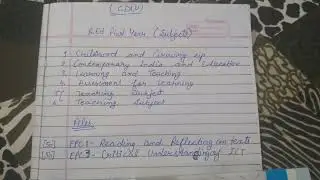 (CDLU)
B.Ed First Year (Subjects)
1. Childhood and Growing up
2. Contemporary India and Education
3. Learning and Teaching
4. Assessment for Learning
5. Teaching Subject
6. Teaching Subject
Files
EPC 1- Reading and Reflecting on texts
EPC 3- Critical Understanding of ICT